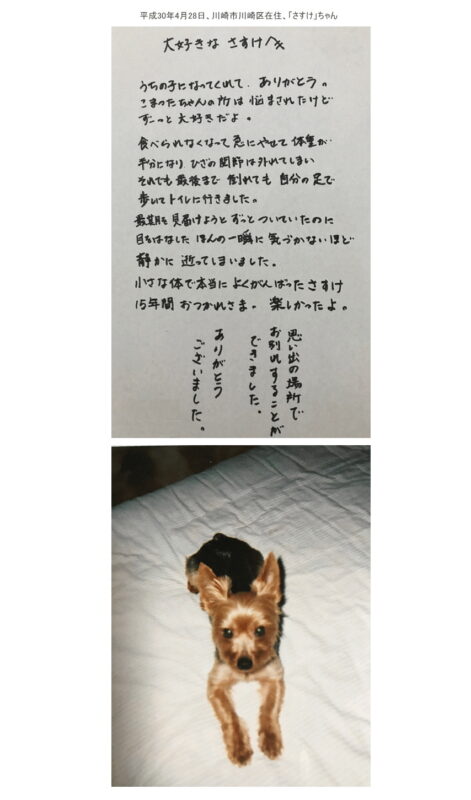 平成30年4月28日、川崎市川崎区在住、「さすけ」ちゃん
大好きな さすけへ
うちの子になってくれて、ありがとう。
こまったちゃんの所は 悩まされたけど
ずーっと 大好きだよ。
食べられなくなって 急にやせて 体重が
半分になり ひざの関節は外れてしまい
それでも 最後まで 倒れても 自分の足で
歩いてトイレに行きました。
最期を見届けようと ずっとついていたのに
目をはなした ほんの一瞬に 気づかないほど
静かに 逝ってしまいました。
小さな体で本当に よくがんばった さすけ
15年間 おつかれさま。 楽しかったよ。
思い出の場所で
お別れすることが
できました。
ありがとう
ございました。